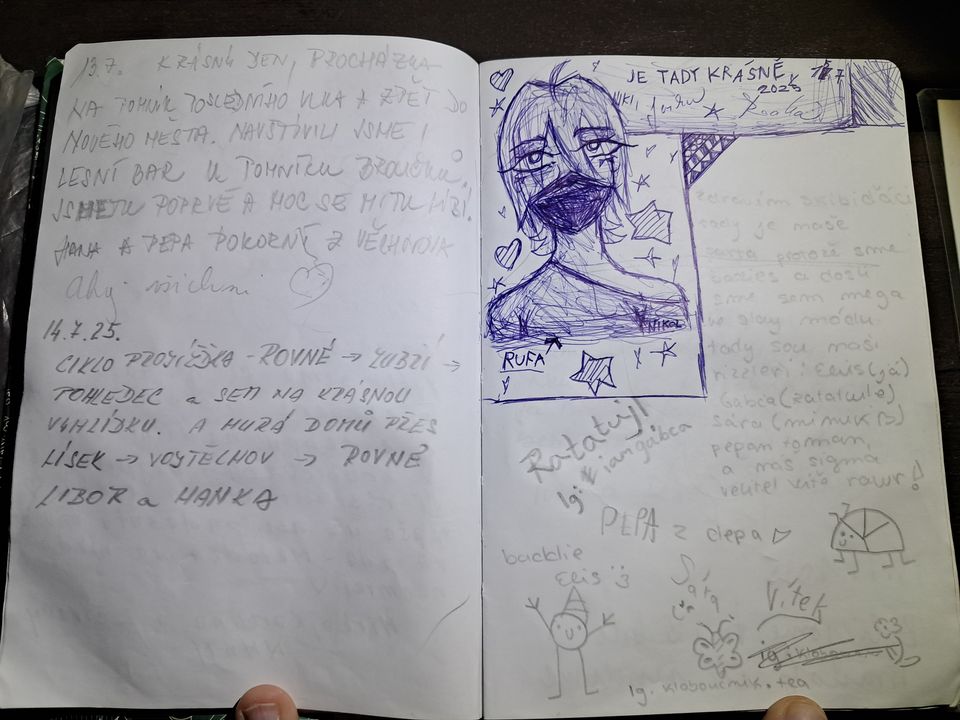 13.7. KRÁSNÝ DEN, PROCHÁZKA
NA POMNÍK POSLEDNÍHO VLKA A ZPĚT DO
NOVÉHO MĚSTA. NAVŠTÍVILI JSME I
LESNÍ BAR U POMNÍKU BROUČKŮ.
JSME TU POPRVÉ A MOC SE MI TU LÍBÍ.
HANA A PEPA POKORNÝ Z VĚCHNOVA
Ahoj všichni
14.7.25.
CIKLO PROJÍŽĎKA - ROVNÉ → ZUBŘÍ →
POHLEDEC a SEM NA KRÁSNOU
VYHLÍDKU. A HURÁ DOMŮ PŘES
LÍSEK → VOJTĚCHOV → ROVNÉ
LIBOR a HANKA
JE TADY KRÁSNĚ
2025
NIKOL
RUFA
zdravím skibiďáci
tady je naše
parta protože sme
baddies a dost
sme sem mega
ve slay módu
tady sou naši
rizzleři: Elis (já)
Gábča (ratatuje)
Sára (mimuk B)
pepan roman,
a náš sigma
velitel Víťa rawr!
Ratatuj!
Ig: iamgabca
PEPA z depa
baddie
Elis :3
Sára
Vítek
ig:
Ig. kloboucnik.tea